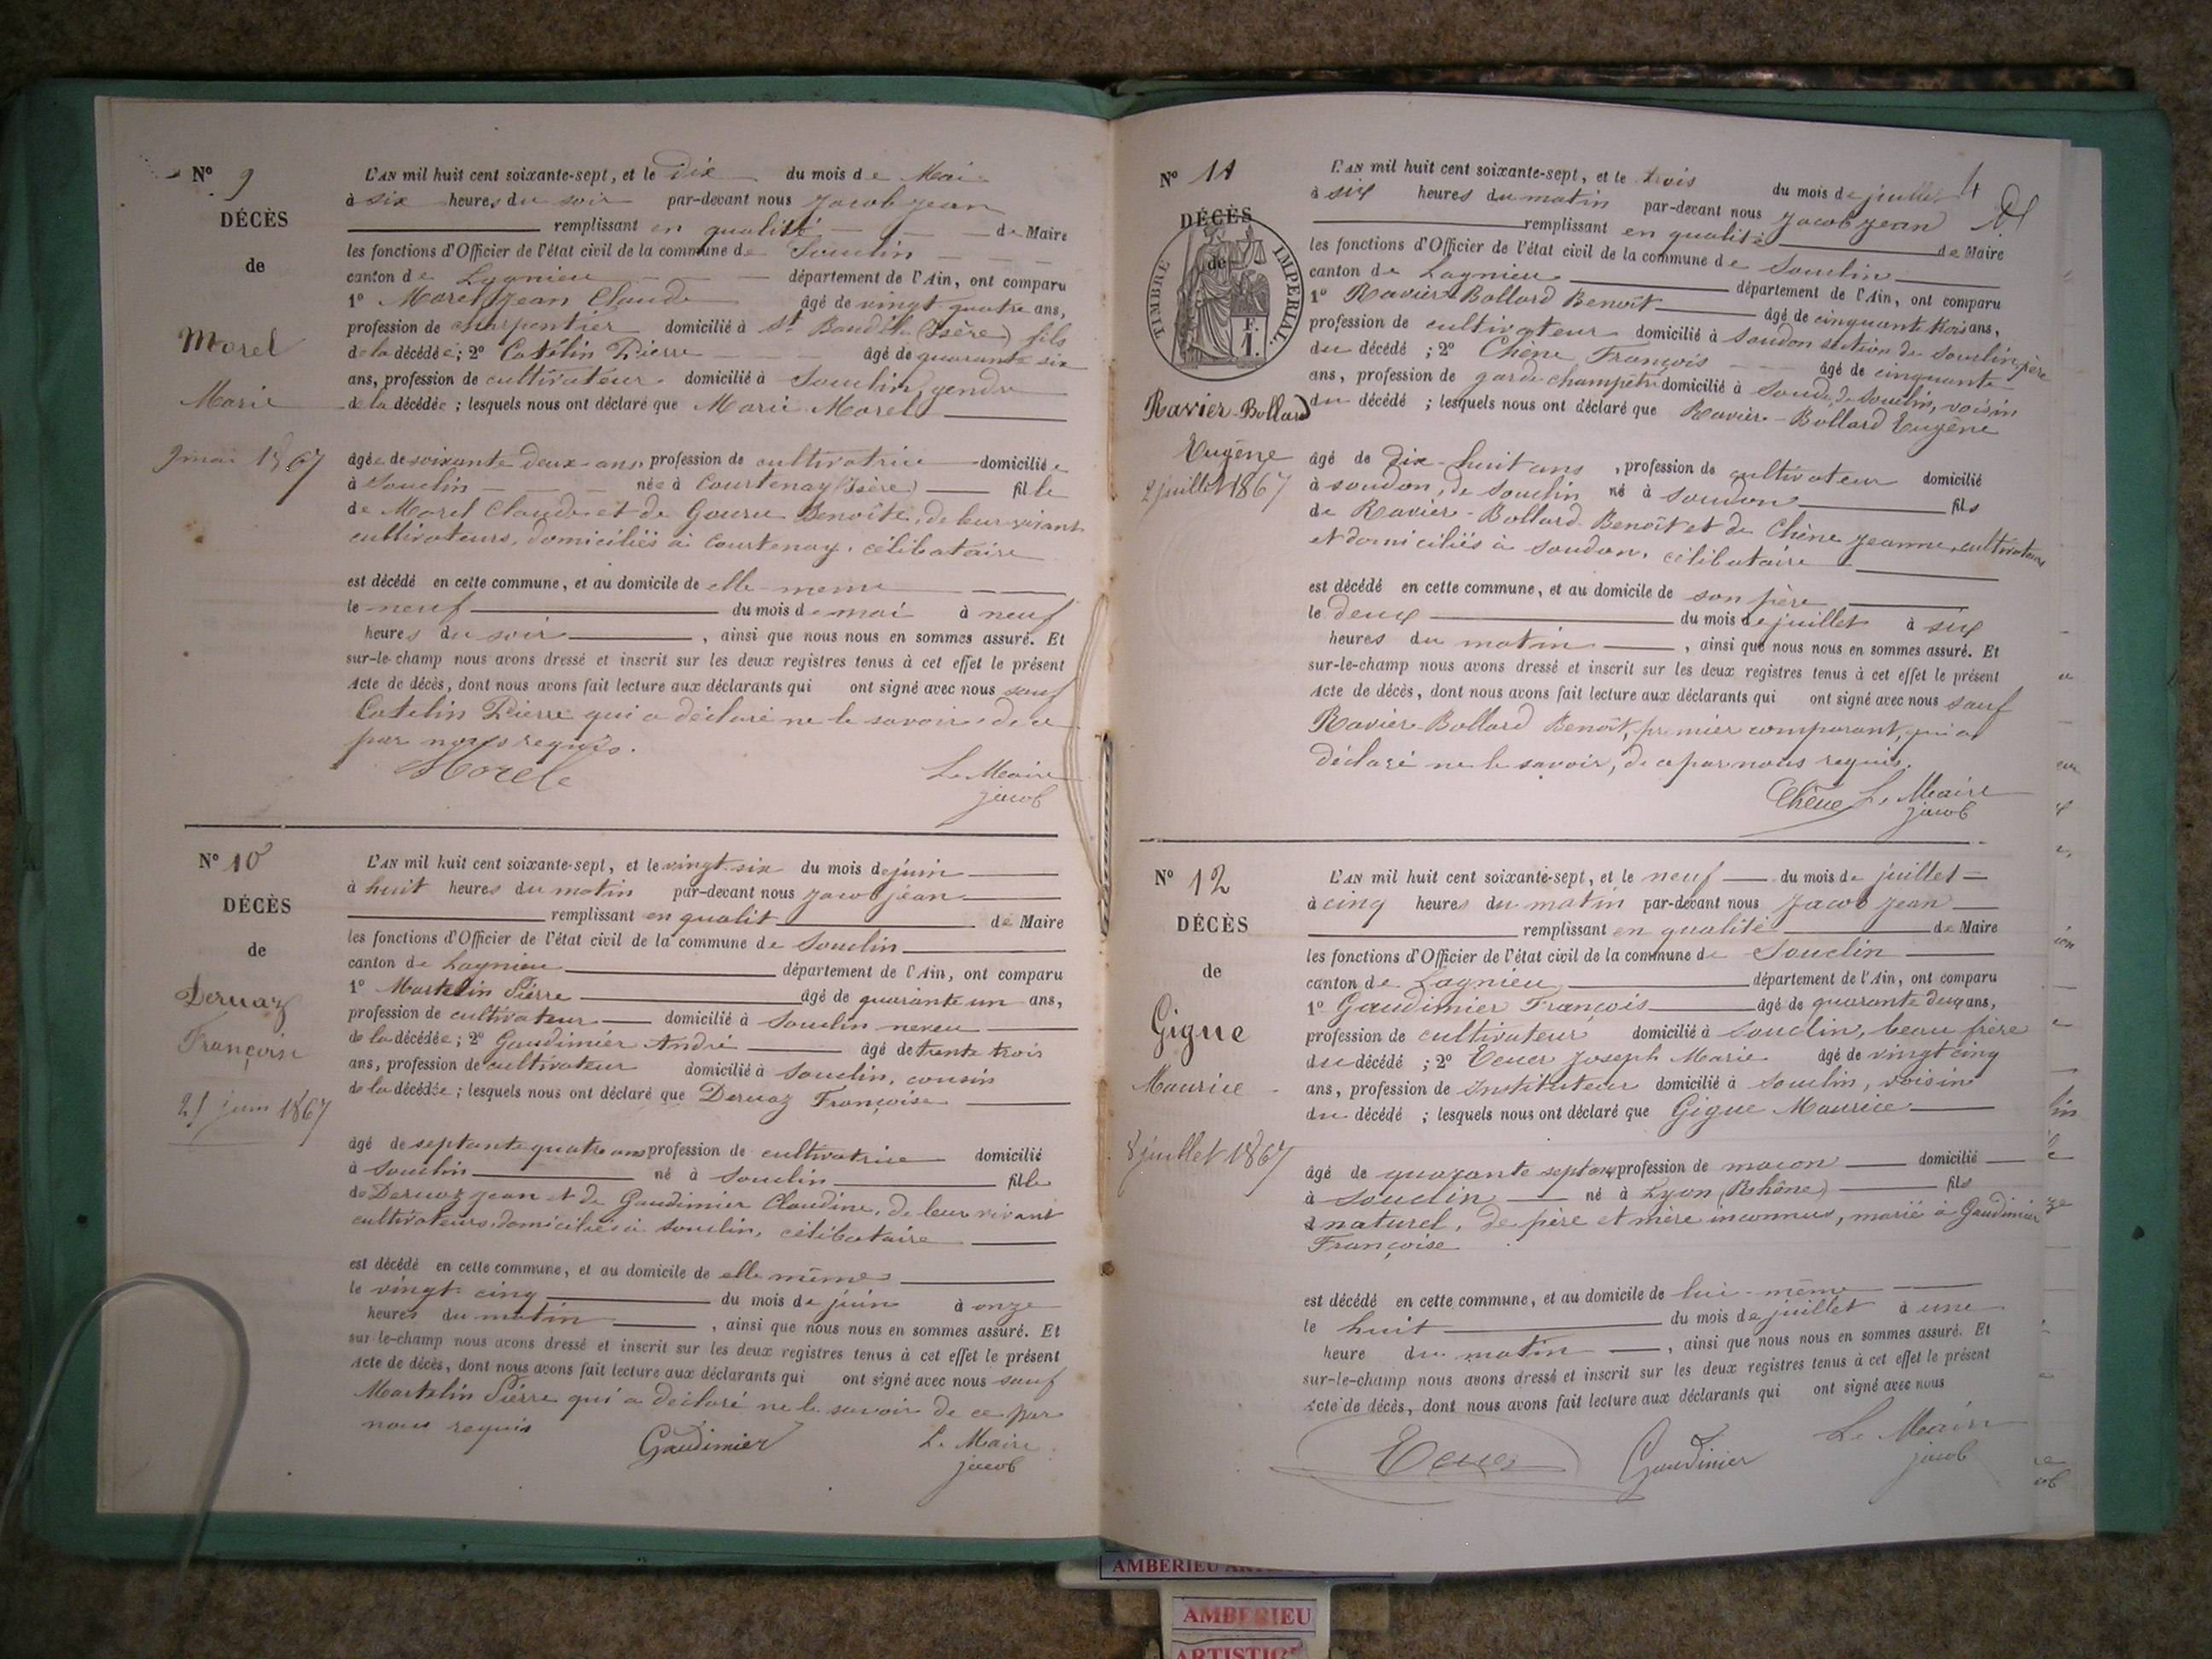 Nº 9
DÉCÈS
de
Morel
Marie
9 mai 1867
L'AN mil huit cent soixante-sept, et le Dix du mois de Mai
à six heures du soir par-devant nous Jacob Jean
remplissant en qualité de Maire
les fonctions d'Officier de l'état civil de la commune de Souclin
canton de Lagnieu département de l'Ain, ont comparu
1º Morel Jean Claude âgé de vingt quatre ans,
profession de charpentier domicilié à St Baudille (Isère) fils
de la décédée; 2º Catelin Pierre âgé de quarante six
ans, profession de cultivateur domicilié à Souclin, gendre
de la décédée; lesquels nous ont déclaré que Marie Morel
âgée de soixante deux ans, profession de cultivatrice domiciliée
à Souclin née à Courtenay (Isère) fille
de Morel Claude et de Gouru Benoîte, de leur vivant
cultivateurs, domiciliés à Courtenay, célibataire
est décédé en cette commune, et au domicile de elle meme
le neuf du mois de mai à neuf
heures du soir, ainsi que nous nous en sommes assuré. Et
sur-le-champ nous avons dressé et inscrit sur les deux registres tenus à cet effet le présent
Acte de décès, dont nous avons fait lecture aux déclarants qui ont signé avec nous sauf
Catelin Pierre qui a déclaré ne le savoir, de ce
par nous requis.
Morel
Le Maire
jacob
Nº 10
DÉCÈS
de
Dervaz
Françoise
25 juin 1867
L'AN mil huit cent soixante-sept, et le vingt-six du mois de juin
à huit heures du matin par-devant nous Jacob jean
remplissant en qualit de Maire
les fonctions d'Officier de l'état civil de la commune de Souclin
canton de Lagnieu département de l'Ain, ont comparu
1º Martelin Pierre âgé de quarante un ans,
profession de cultivateur domicilié à Souclin neveu
de la décédée; 2º Gaudimier André âgé de trente trois
ans, profession de cultivateur domicilié à Souclin, cousin
de la décédée; lesquels nous ont déclaré que Dervaz Françoise
âgé de septante quatre ans profession de cultivatrice domicilié
à Souclin né à Souclin fille
de Dervaz Jean et de Gaudimier Claudine, de leur vivant
cultivateurs domiciliés à Souclin, célibataire
est décédé en cette commune, et au domicile de elle même
le vingt-cinq du mois de juin à onze
heures du matin, ainsi que nous nous en sommes assuré. Et
sur-le-champ nous avons dressé et inscrit sur les deux registres tenus à cet effet le présent
Acte de décès, dont nous avons fait lecture aux déclarants qui ont signé avec nous sauf
Martelin Pierre qui a déclaré ne le savoir de ce par
nous requis
Gaudimier
Le Maire
jacob
4
Nº 11
DÉCÈS
de
TIMBRE IMPERIAL
1 F.
Ravier-Bollard
Eugène
2 juillet 1867
L'AN mil huit cent soixante-sept, et le trois du mois de juillet
à six heures du matin par-devant nous Jacob Jean
remplissant en qualité de Maire
les fonctions d'Officier de l'état civil de la commune de Souclin
canton de Lagnieu département de l'Ain, ont comparu
1º Ravier-Bollard Benoît âgé de cinquante trois ans,
profession de cultivateur domicilié à Soudon section de Souclin, père
du décédé; 2º Chêne François âgé de cinquante
ans, profession de garde champêtre domicilié à Soudon, de Souclin, voisin
du décédé; lesquels nous ont déclaré que Ravier-Bollard Eugène
âgé de Dix-huit ans, profession de cultivateur domicilié
à Soudon, de Souclin né à Soudon fils
de Ravier-Bollard Benoît et de Chêne Jeanne, cultivateurs
et domiciliés à Soudon, célibataire
est décédé en cette commune, et au domicile de son père
le deux du mois de juillet à six
heures du matin, ainsi que nous nous en sommes assuré. Et
sur-le-champ nous avons dressé et inscrit sur les deux registres tenus à cet effet le présent
Acte de décès, dont nous avons fait lecture aux déclarants qui ont signé avec nous sauf
Ravier-Bollard Benoît, premier comparant, qui a
déclaré ne le savoir, de ce par nous requis.
Chêne
Le Maire
jacob
Nº 12
DÉCÈS
de
Gigue
Maurice
8 juillet 1867
L'AN mil huit cent soixante-sept, et le neuf du mois de juillet
à cinq heures du matin par-devant nous Jacob Jean
remplissant en qualité de Maire
les fonctions d'Officier de l'état civil de la commune de Souclin
canton de Lagnieu département de l'Ain, ont comparu
1º Gaudimier François âgé de quarante deux ans,
profession de cultivateur domicilié à Souclin, beau frère
du décédé; 2º Joseph Marie âgé de vingt cinq
ans, profession de Instituteur domicilié à Souclin, voisin
du décédé; lesquels nous ont déclaré que Gigue Maurice
âgé de quarante sept ans profession de maçon domicilié
à Souclin né à Lyon (Rhône) fils
naturel, de père et mère inconnus, marié à Gaudimier
Françoise
est décédé en cette commune, et au domicile de lui-même
le huit du mois de juillet à une
heure du matin, ainsi que nous nous en sommes assuré. Et
sur-le-champ nous avons dressé et inscrit sur les deux registres tenus à cet effet le présent
Acte de décès, dont nous avons fait lecture aux déclarants qui ont signé avec nous
Gaudimier
Le Maire
jacob
AMBERIEU
AMBERIEU
ARTISTIQ